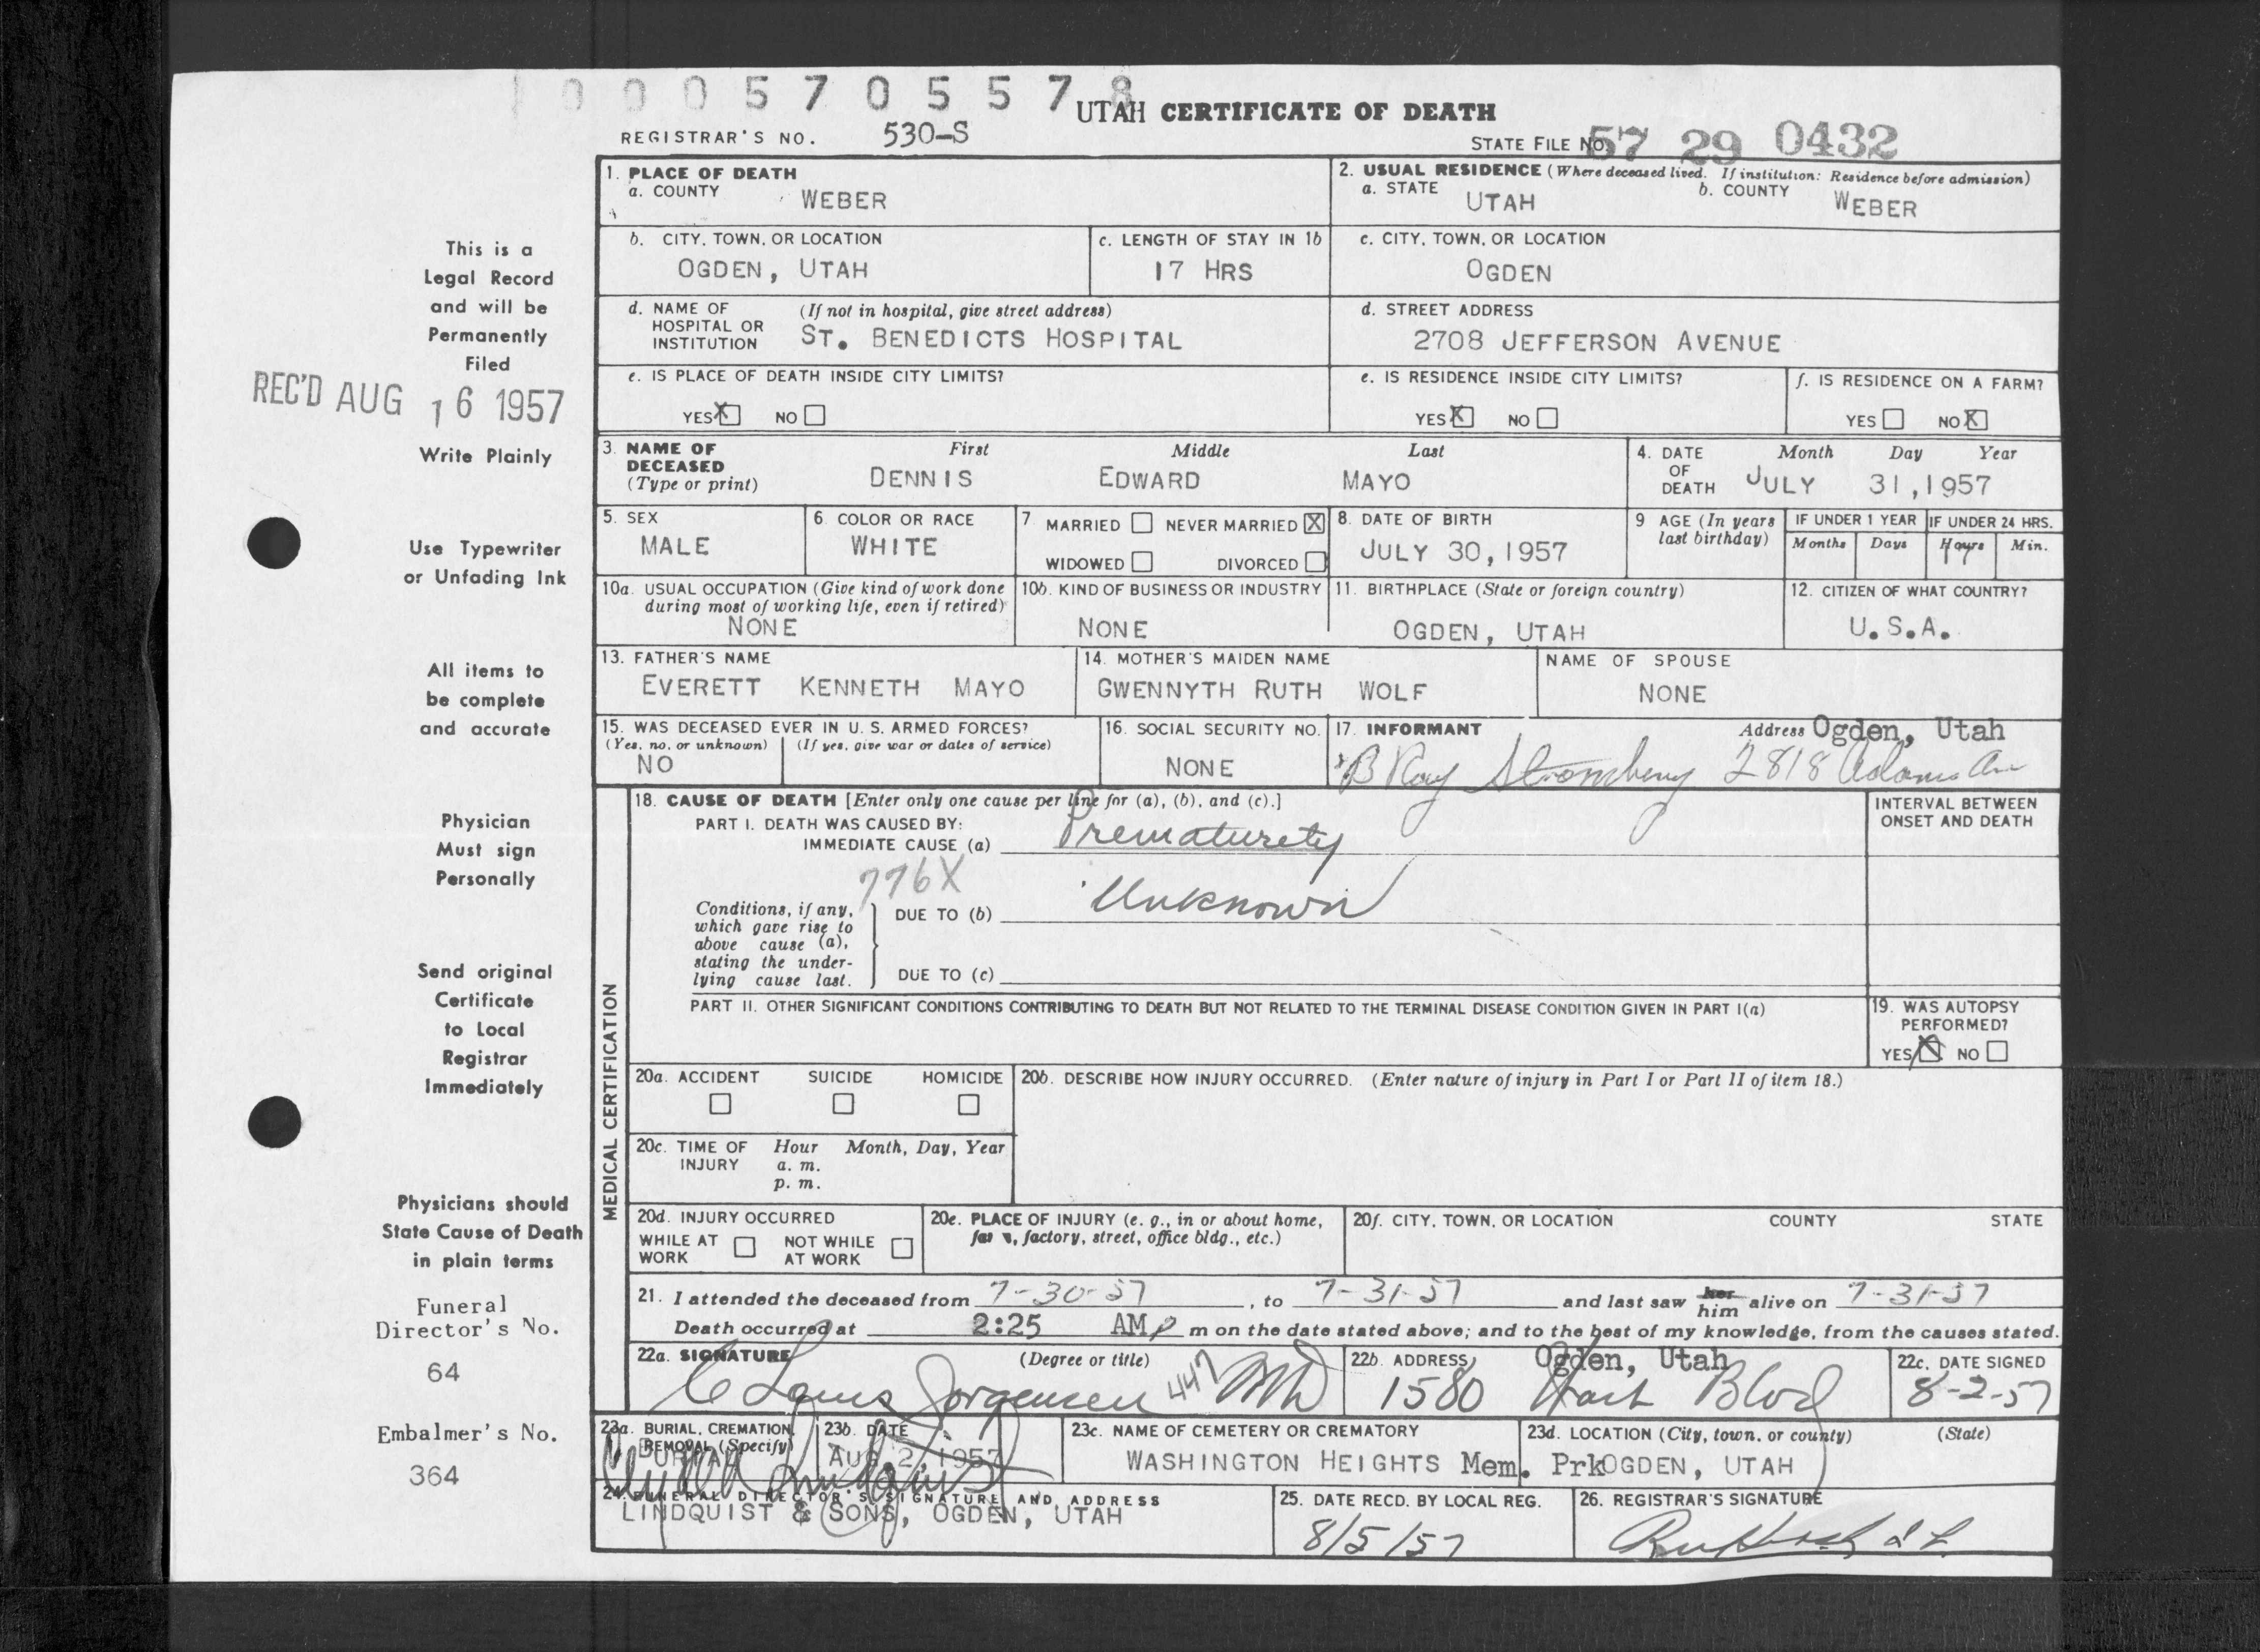 10005705578
UTAH CERTIFICATE OF DEATH
REGISTRAR'S NO. 530-S
STATE FILE NO. 57 29 0432
1. PLACE OF DEATH
a. COUNTY WEBER
2. USUAL RESIDENCE (Where deceased lived. If institution: Residence before admission)
a. STATE UTAH b. COUNTY WEBER
b. CITY, TOWN, OR LOCATION
OGDEN, UTAH
c. LENGTH OF STAY IN 1b
17 HRS
c. CITY, TOWN, OR LOCATION
OGDEN
d. NAME OF HOSPITAL OR INSTITUTION (If not in hospital, give street address)
ST. BENEDICTS HOSPITAL
d. STREET ADDRESS
2708 JEFFERSON AVENUE
e. IS PLACE OF DEATH INSIDE CITY LIMITS?
YES X NO
e. IS RESIDENCE INSIDE CITY LIMITS?
YES X NO
f. IS RESIDENCE ON A FARM?
YES NO X
3. NAME OF DECEASED (Type or print)
First Middle Last
DENNIS EDWARD MAYO
4. DATE OF DEATH
Month Day Year
JULY 31, 1957
5. SEX
MALE
6. COLOR OR RACE
WHITE
7. MARRIED NEVER MARRIED X
WIDOWED DIVORCED
8. DATE OF BIRTH
JULY 30, 1957
9 AGE (In years last birthday)
IF UNDER 1 YEAR
Months Days
IF UNDER 24 HRS.
Hours Min.
17
10a. USUAL OCCUPATION (Give kind of work done during most of working life, even if retired)
NONE
10b. KIND OF BUSINESS OR INDUSTRY
NONE
11. BIRTHPLACE (State or foreign country)
OGDEN, UTAH
12. CITIZEN OF WHAT COUNTRY?
U.S.A.
13. FATHER'S NAME
EVERETT KENNETH MAYO
14. MOTHER'S MAIDEN NAME
GWENNYTH RUTH WOLF
NAME OF SPOUSE
NONE
15. WAS DECEASED EVER IN U. S. ARMED FORCES?
(Yes, no, or unknown) (If yes, give war or dates of service)
NO
16. SOCIAL SECURITY NO.
NONE
17. INFORMANT Address Ogden, Utah
B Ray Stromberg 2818 Adams Av
MEDICAL CERTIFICATION
18. CAUSE OF DEATH [Enter only one cause per line for (a), (b), and (c).]
PART I. DEATH WAS CAUSED BY:
IMMEDIATE CAUSE (a) Prematurety
776X
Conditions, if any, which gave rise to above cause (a), stating the underlying cause last.
DUE TO (b) Unknown
DUE TO (c)
INTERVAL BETWEEN ONSET AND DEATH
PART II. OTHER SIGNIFICANT CONDITIONS CONTRIBUTING TO DEATH BUT NOT RELATED TO THE TERMINAL DISEASE CONDITION GIVEN IN PART I(a)
19. WAS AUTOPSY PERFORMED?
YES X NO
20a. ACCIDENT SUICIDE HOMICIDE
20b. DESCRIBE HOW INJURY OCCURRED. (Enter nature of injury in Part I or Part II of item 18.)
20c. TIME OF INJURY Hour Month, Day, Year
a. m.
p. m.
20d. INJURY OCCURRED
WHILE AT WORK NOT WHILE AT WORK
20e. PLACE OF INJURY (e. g., in or about home, farm, factory, street, office bldg., etc.)
20f. CITY, TOWN, OR LOCATION COUNTY STATE
21. I attended the deceased from 7-30-57, to 7-31-57 and last saw her him alive on 7-31-57
Death occurred at 2:25 AM m on the date stated above; and to the best of my knowledge, from the causes stated.
22a. SIGNATURE (Degree or title)
C Louis Jorgensen 447 MD
22b. ADDRESS Ogden, Utah
1580 Blvd
22c. DATE SIGNED
8-2-57
23a. BURIAL, CREMATION, REMOVAL (Specify)
BURIAL
23b. DATE
AUG 2, 1957
23c. NAME OF CEMETERY OR CREMATORY
WASHINGTON HEIGHTS Mem. Prk
23d. LOCATION (City, town, or county) (State)
OGDEN, UTAH
24. FUNERAL DIRECTOR'S SIGNATURE AND ADDRESS
LINDQUIST & SONS, OGDEN, UTAH
25. DATE RECD. BY LOCAL REG.
8/5/57
26. REGISTRAR'S SIGNATURE
This is a
Legal Record
and will be
Permanently
Filed
REC'D AUG 16 1957
Write Plainly
Use Typewriter
or Unfading Ink
All items to
be complete
and accurate
Physician
Must sign
Personally
Send original
Certificate
to Local
Registrar
Immediately
Physicians should
State Cause of Death
in plain terms
Funeral
Director's No.
64
Embalmer's No.
364